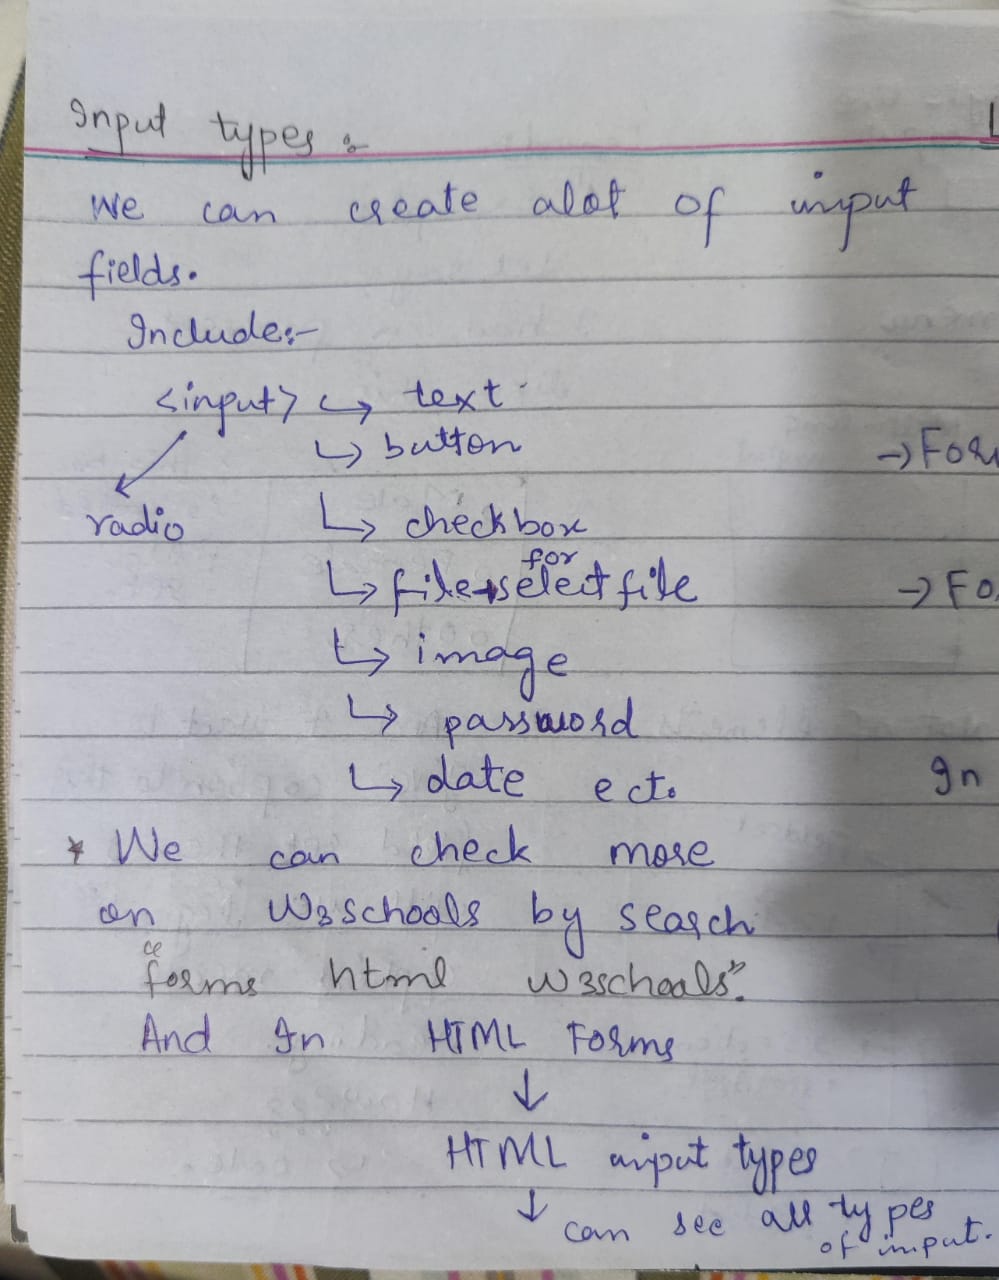 Input types :-
We can create alot of input
fields.
Include:-
<input> ↳ text
↳ button
→ For
radio ↳ checkbox
for
↳ file→select file
→ Fo
↳ image
↳ password
↳ date ect.
In
* We can check more
on W3schools by search
"forms html w3schools".
And In HTML Forms
↓
HTML input types
↓ can see all types
of input.